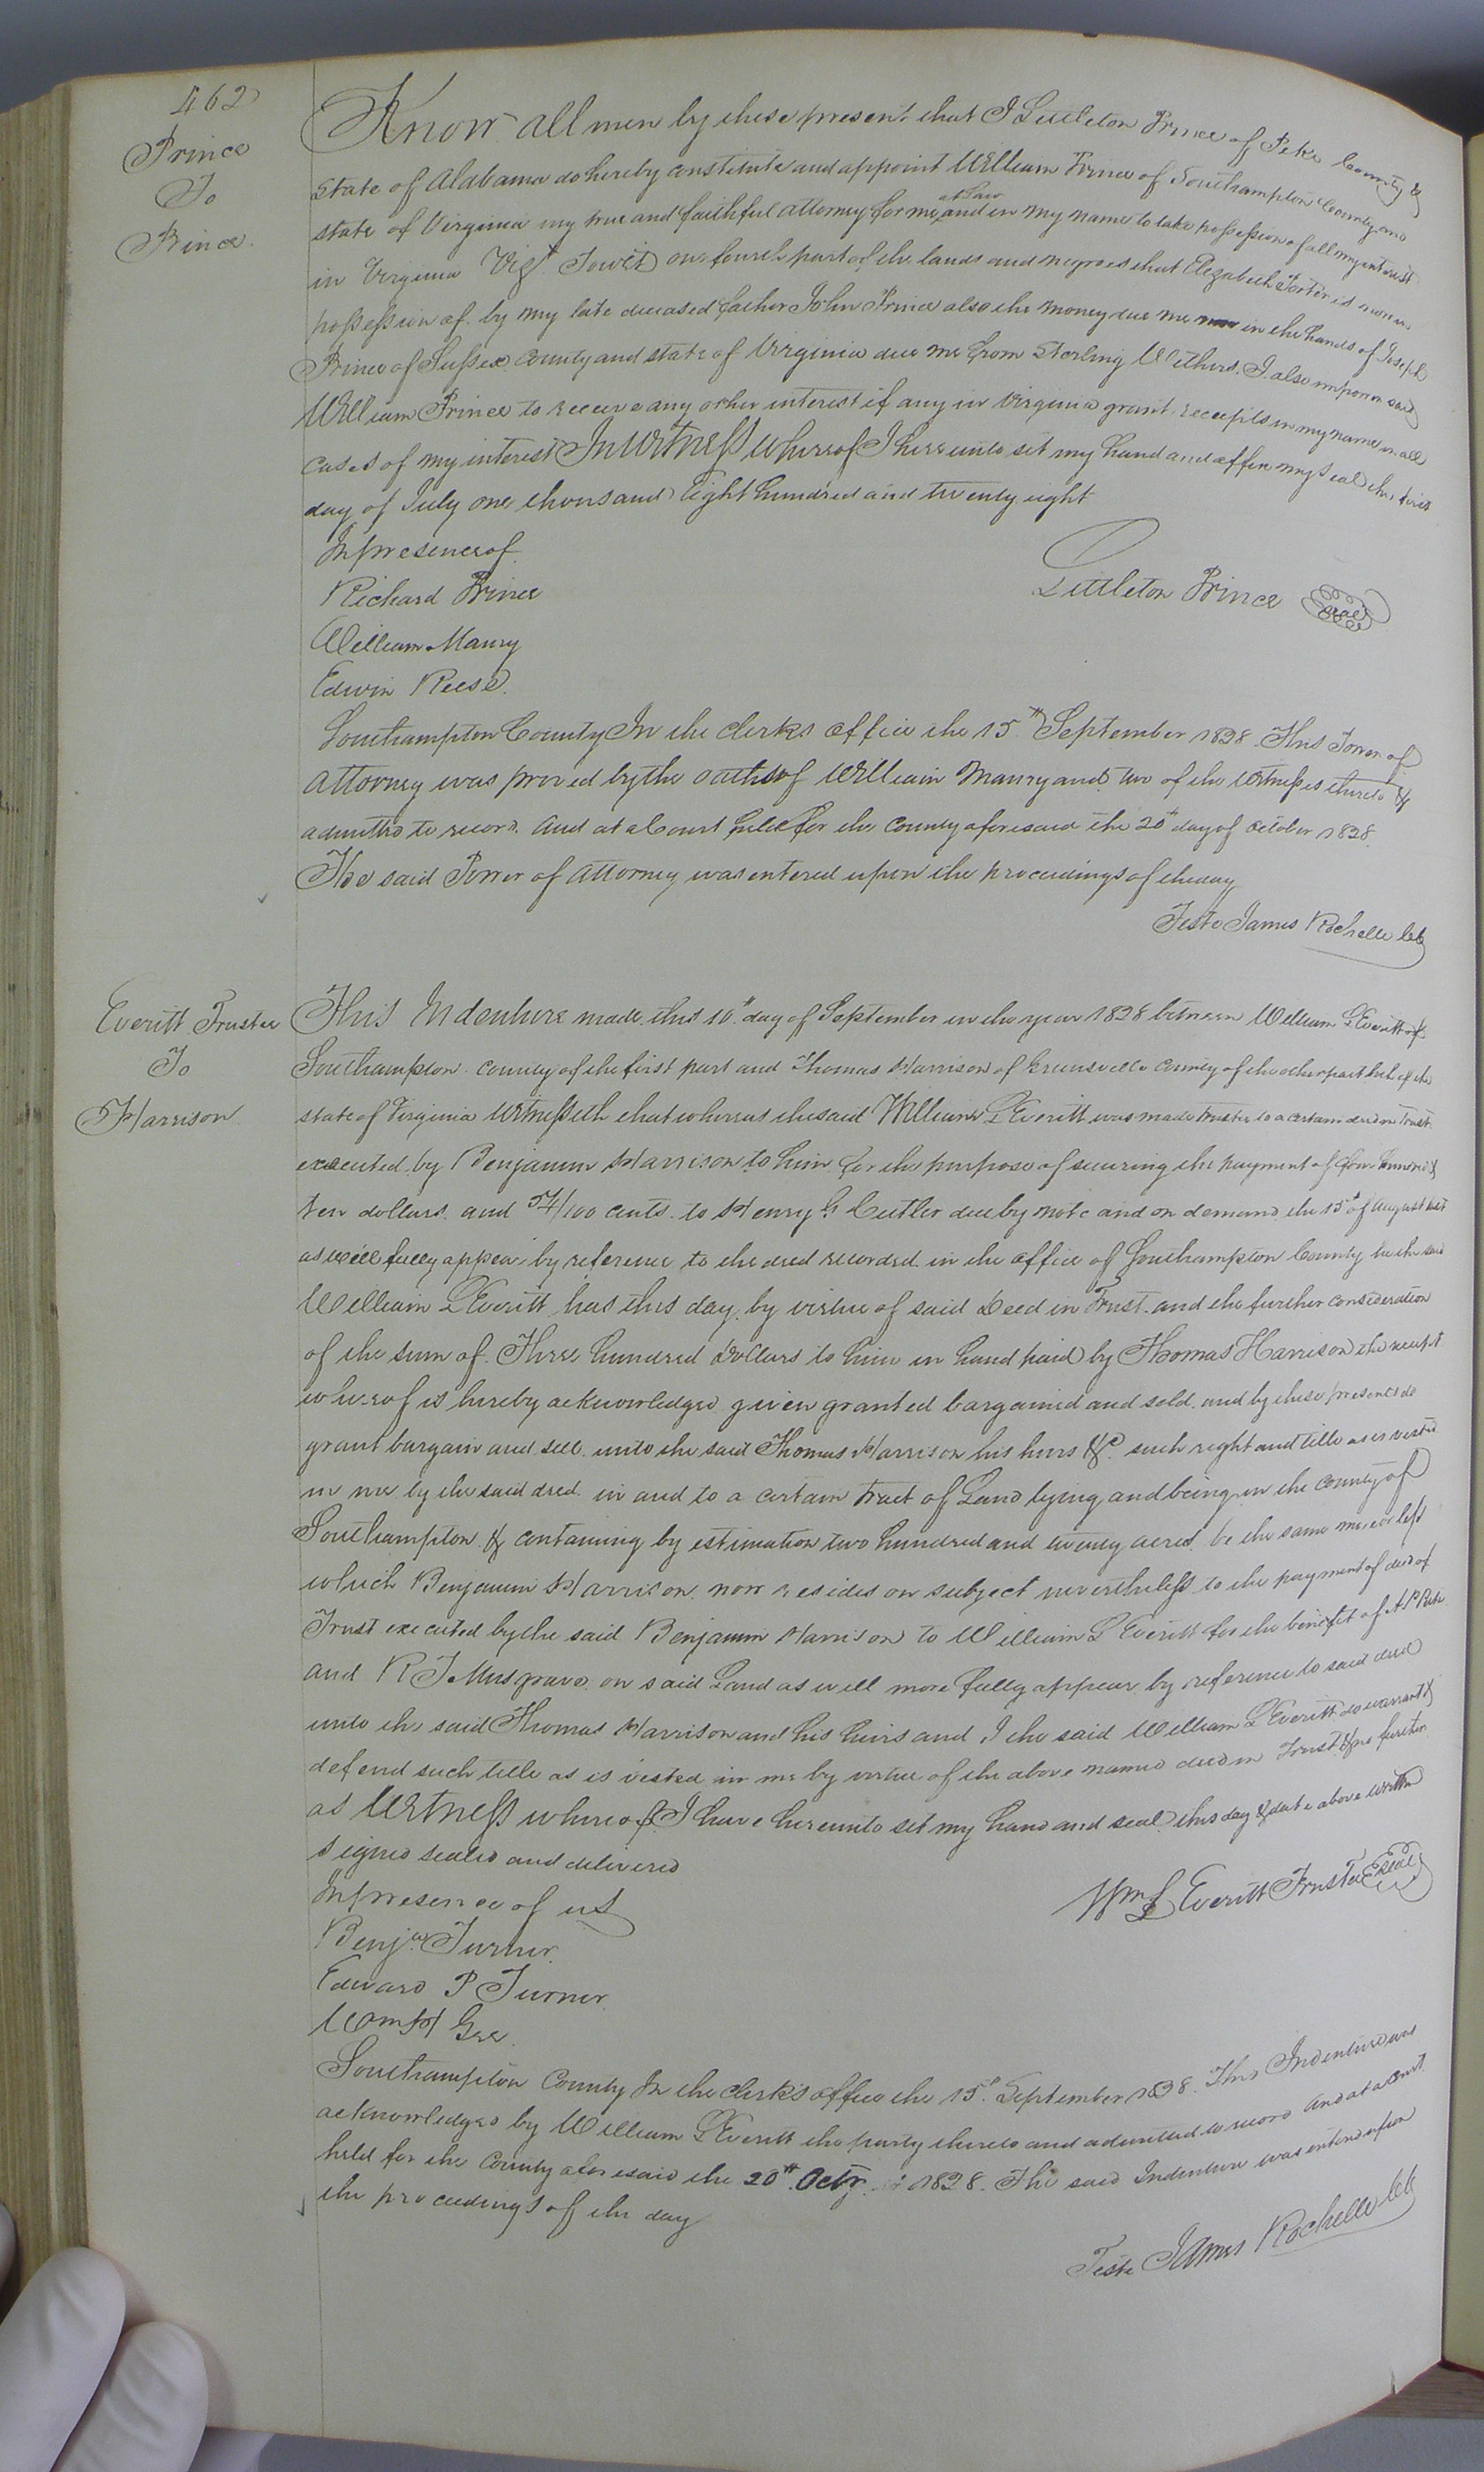 462
Prince
To
Prince.
Know all men by these present that I Littleton Prince of Pike County &
State of Alabama do hereby constitute and appoint William Prince of Southampton County and
at Law
state of Virginia my true and faithful attorney for me and in my name to take possession of all my interest
in Virginia Vizt. Towit one fourth part of the lands and negroes that Elizabeth Porter is now in
possession of. by my late deceased father John Prince also the money due me in the hands of Joseph
Prince of Sussex County and state of Virginia due me from Sterling Withers. I also impower said
William Prince to receive any other interest if any in Virginia grant receipts in my name in all
cases of my interest In Witness whereof I hereunto set my hand and affix my seal this first
day of July one thousand Eight hundred and twenty eight
In presence of
Richard Prince
Littleton Prince Seal
William Maury
Edwin Reese.
Southampton County In the Clerks office the 15th September 1828. This Power of
attorney was proved by the oaths of William Maury and two of the Witnesses thereto &
admitted to record. And at a Court held for the County aforesaid the 20th day of October 1828.
The said Power of attorney was entered upon the proceedings of the day
Teste James Rochelle Clk
Everitt Trustee
To
Harrison
This Indenture made this 10th day of September in the year 1828 between William L Everitt of
Southampton County of the first part and Thomas Harrison of Greensville County of the other part both of the
state of Virginia Witnesseth that whereas the said William L Everitt was made Trustee to a certain deed in Trust
executed by Benjamin Harrison to him for the purpose of securing the payment of four hundred &
ten dollars. and 54/100 cents. to Henry G Cutler due by note and on demand the 15th of August last
as will fully appear by reference to the deed recorded in the office of Southampton County he the said
William L Everitt has this day by virtue of said Deed in Trust and the further consideration
of the sum of Three hundred Dollars to him in hand paid by Thomas Harrison the receipt
whereof is hereby acknowledged given granted bargained and sold. and by these presents do
grant bargain and sell. unto the said Thomas Harrison his heirs &c. such right and title as is vested
in me by the said deed in and to a certain tract of Land lying and being in the County of
Southampton & containing by estimation two hundred and twenty acres be the same more or less
which Benjamin Harrison now resides on subject nevertheless to the payment of deed of
Trust executed by the said Benjamin Harrison to William L Everitt for the benefit of A P
and R J Musgrave on said Land as will more fully appear by reference to said deed
unto the said Thomas Harrison and his heirs and I the said William L Everitt do warrant &
defend such title as is vested in me by virtue of the above named deed in Trust & no further
as Witness whereof I have hereunto set my hand and seal this day & date above written
Signed sealed and delivered
In presence of us
Wm L Everitt Trustee Seal
Benja. Turner
Edward P Turner
Wm H Gee
Southampton County In the Clerk's office the 15th September 1828. This Indenture was
acknowledged by William L Everitt the party thereto and admitted to record And at a Court
held for the County aforesaid the 20th. Octr. 1828. The said Indenture was entered upon
the proceedings of the day
Teste James Rochelle Clk